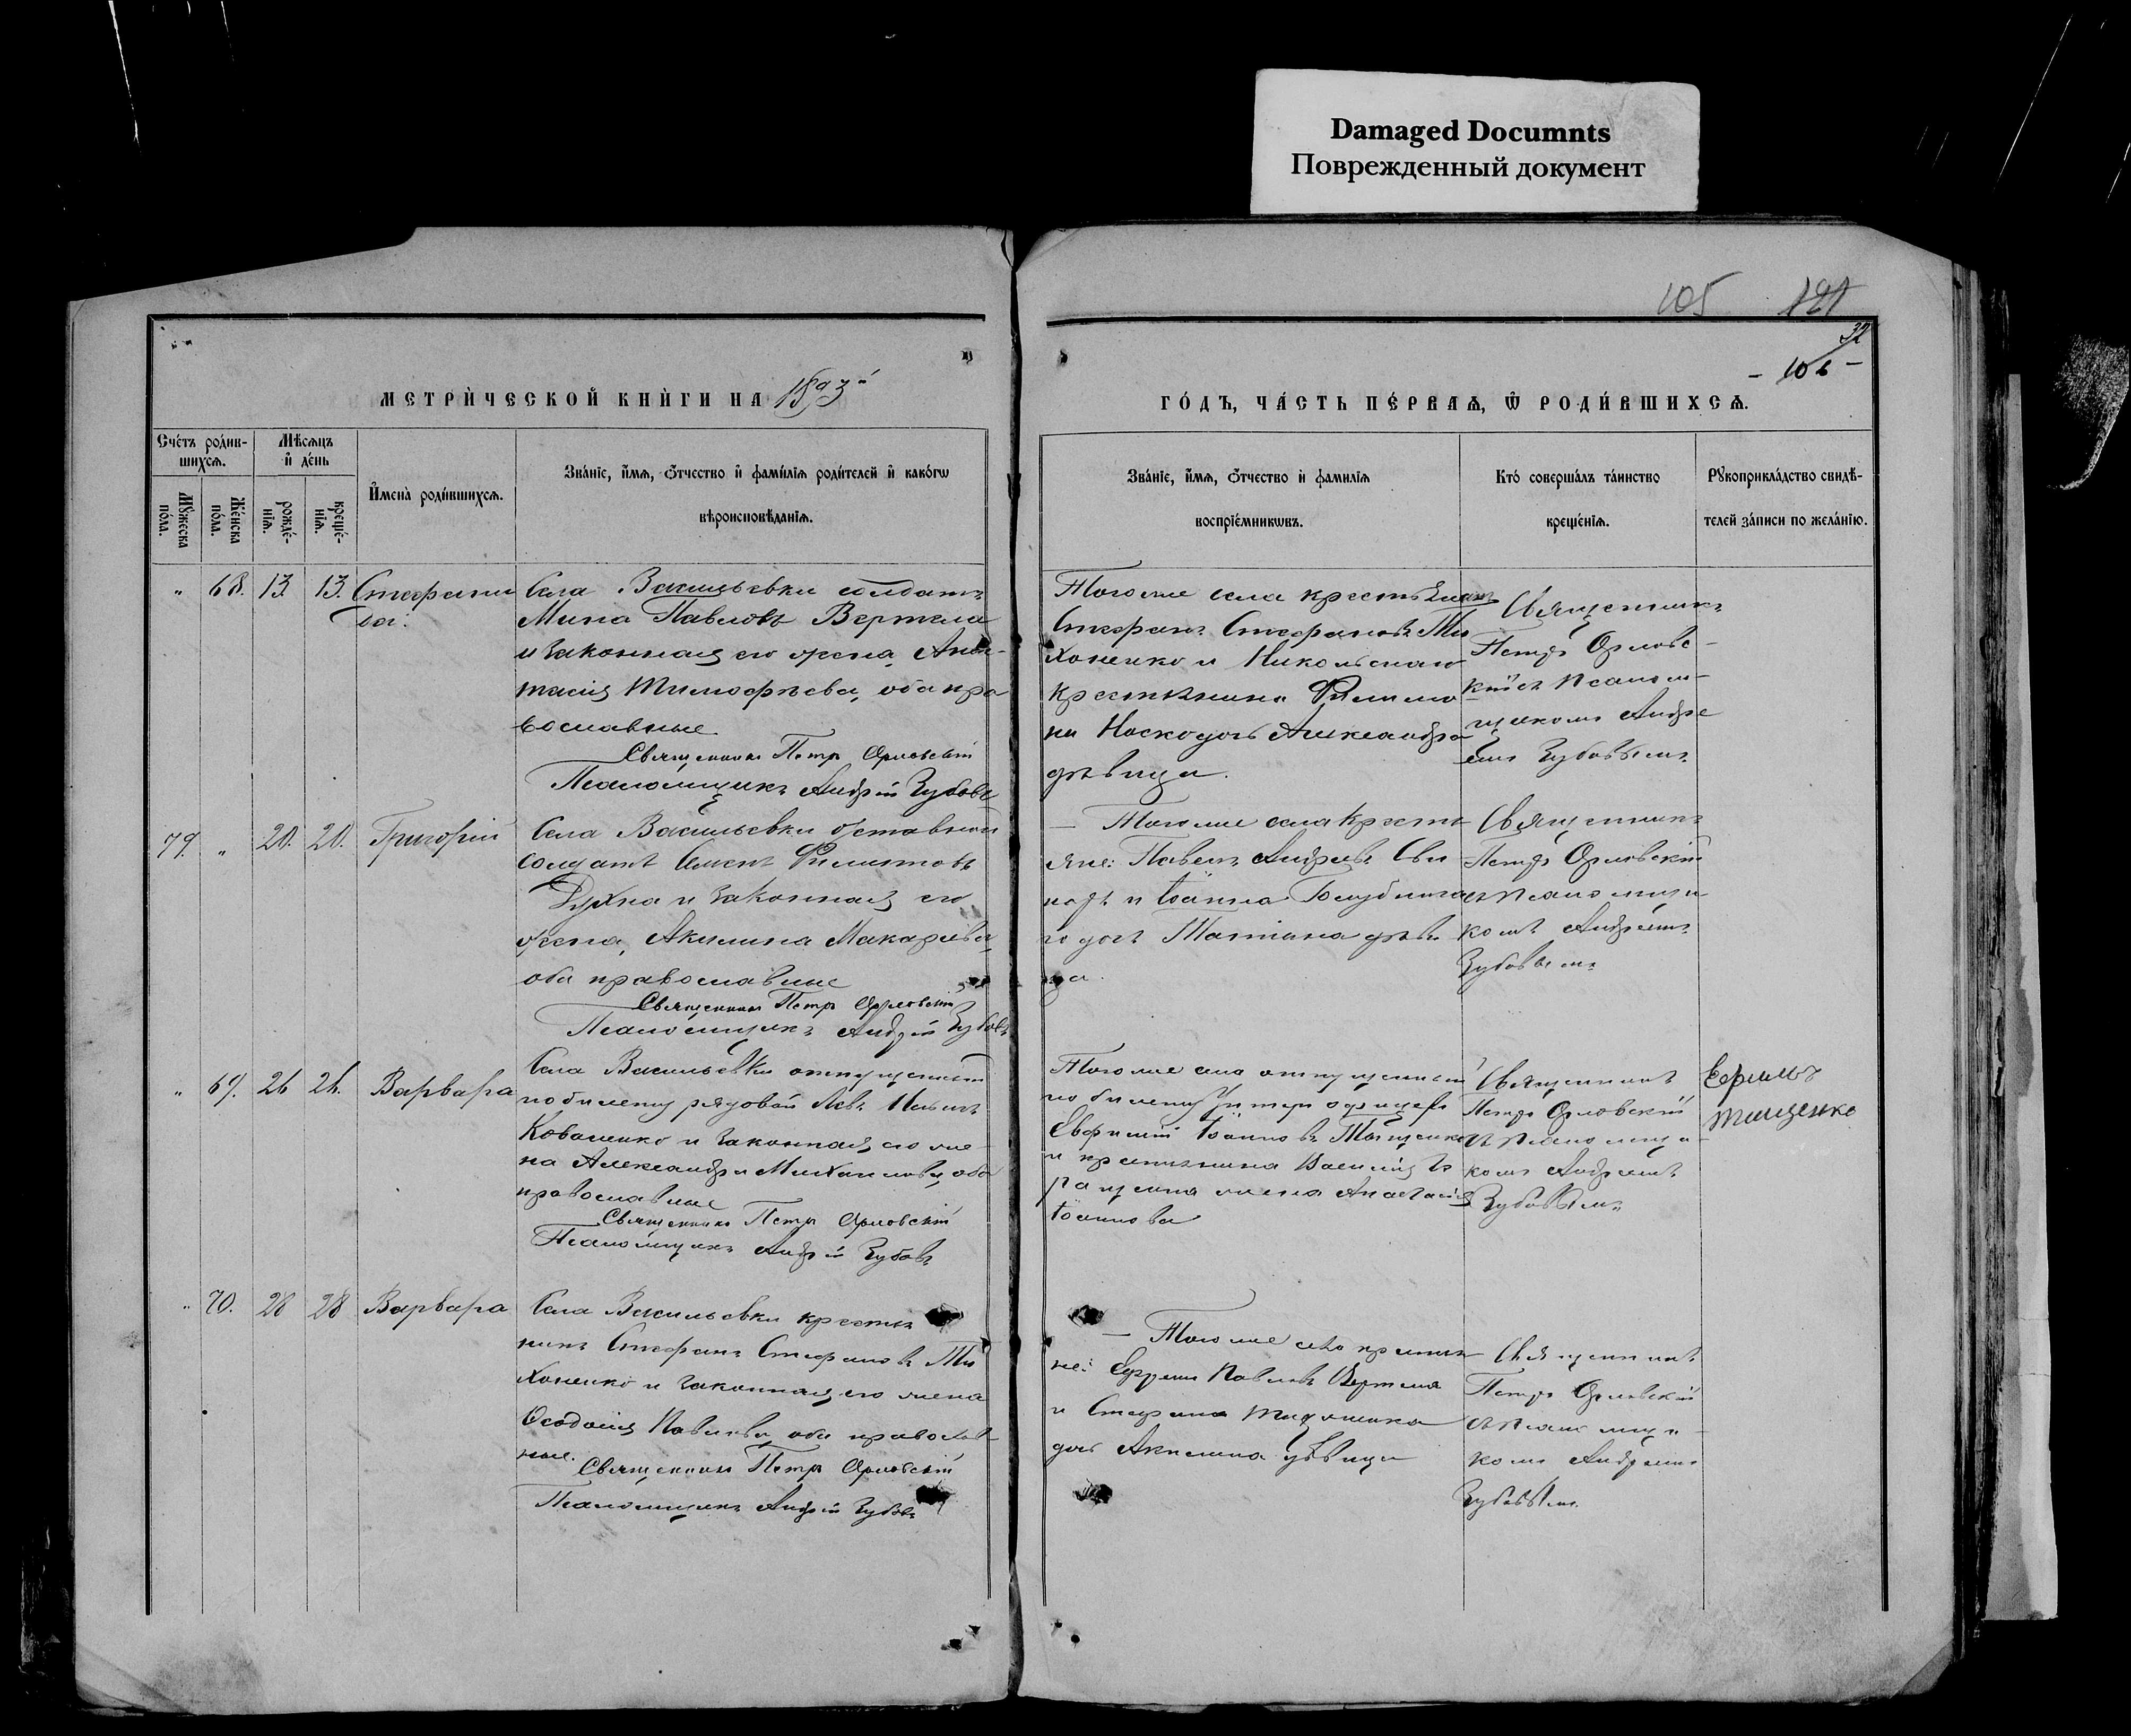 Damaged Documnts
Поврежденный документ
105 121
32
- 106 -
МЕТРИ́ЧЕСКОЙ КНИ́ГИ НА 1893
ГО́ДЪ, ЧА́СТЬ ПЕ́РВАѦ, Ѿ РОДИ́ВШИХСѦ.
Сче́тъ роди́в-
шихсѧ.
Мѣ́сѧцъ
и҆ де́нь
Мꙋ́жеска
по́ла.
Же́нска
по́ла.
рожде́-
нїѧ.
креще́-
нїѧ.
И҆мена̀ роди́вшихсѧ.
Зва́нїе, и҆́мѧ, ѻ҆́тчество и҆ фамі́лїѧ роди́телей и҆ како́гѡ
вѣроисповѣ́данїѧ.
Зва́нїе, и҆́мѧ, ѻ҆́тчество и҆ фамилїѧ
воспрїе́мникѡвъ.
Кто́ соверша́лъ та́инство
креще́нїѧ.
Рꙋкоприкла́дство свидѣ́-
телей за́писи по жела́нїю.
" 68. 13. 13. Стефани
да.
Села Васильевки солдатъ
Мина Павловъ Вертела
и законная его жена Анас-
тасія Тимофѣева, оба пра
вославные
Священникъ Петръ Орловскій
Псаломщикъ Андрей Зубовъ
Тогоже села крестьянинъ
Стефанъ Стефановъ Ти
хоненко и Никольскаго
крестьянина Филимо
на дочь Александра
дѣвица.
Священникъ
Петръ Орловс-
кій съ псалом-
щикомъ Андре
емъ Зубовымъ
79. " 20. 20. Григорій
Села Васильевки отставной
солдатъ Семенъ Филиповъ
Духна и законная его
жена, Акилина Макарьева
оба православные
Священникъ Петръ Орловскій
Псаломщикъ Андрей Зубовъ
— Тогоже села кресть
яне: Павелъ Андреевъ Сви
наръ и Іоанна
дочь Татіана дѣви
ца.
Священникъ
Петръ Орловскій
съ псаломщи
комъ Андреемъ
Зубовымъ
" 69. 26 26. Варвара
Села Васильевки отпущенный
по билету рядовой Левъ
Коваленко и законная его же
на Александра Михаилова, оба
православные
Священникъ Петръ Орловскій
Псаломщикъ Андрей Зубовъ
Тогоже села отпущенный
по билету унтеръ офицеръ
Евфимій Іоанновъ Тищенко
и крестьянина Василія
жена Анастасія
Іоаннова
Священникъ
Петръ Орловскій
съ псаломщи
комъ Андреемъ
Зубовымъ
Ефимъ
Тищенко
" 70. 28 28 Варвара
Села Васильевки крестья
нинъ Стефанъ Стефановъ Ти
хоненко и законная его жена
Ѳеодосія Павлова, оба православ
ные.
Священникъ Петръ Орловскій
Псаломщикъ Андрей Зубовъ
— Тогоже села крестья
не: Ефремъ Павловъ Вертела
и Стефана
дочь Акилина дѣвица
Священникъ
Петръ Орловскій
съ псаломщи
комъ Андреемъ
Зубовымъ